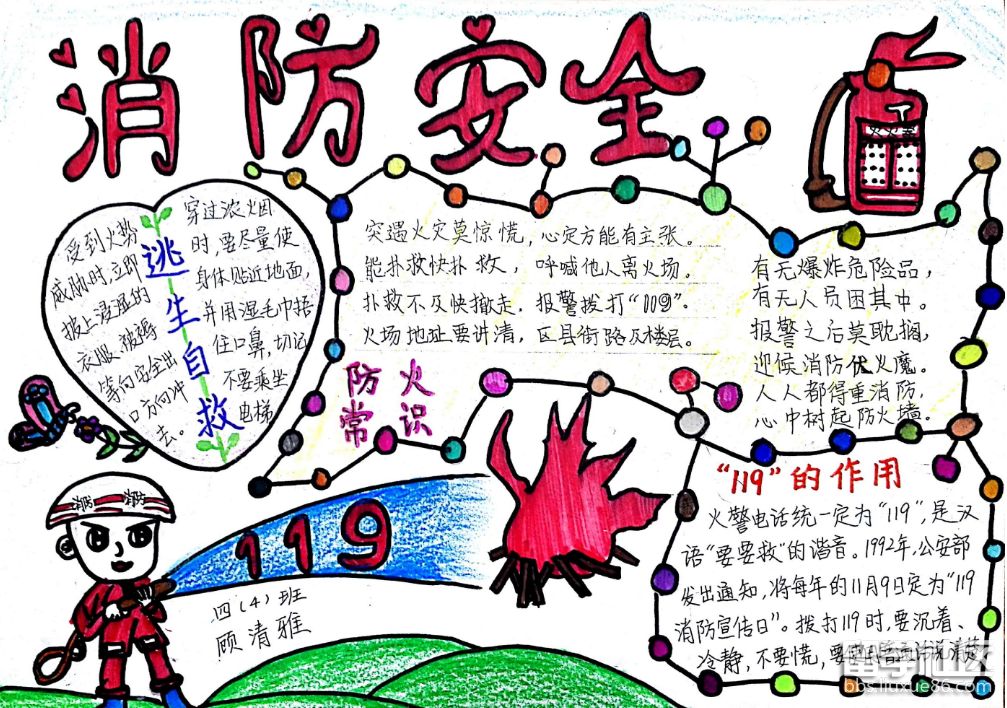 消防安全
灭火器
受到火势
威胁时,立即
披上浸湿的
衣服、被褥
等向安全出
口方向冲
去。
逃生自救
穿过浓烟
时,要尽量使
身体贴近地面,
并用湿毛巾捂
住口鼻,切记
不要乘坐
电梯
突遇火灾莫惊慌,心定方能有主张。
能扑救快扑救,呼喊他人离火场。
扑救不及快撤走,报警拨打“119”。
火场地址要讲清,区县街路及楼层。
防火
常识
有无爆炸危险品,
有无人员困其中。
报警之后莫耽搁,
迎候消防伏火魔。
人人都得重消防,
心中树起防火墙。
“119”的作用
火警电话统一定为“119”,是汉
语“要要救”的谐音。1992年,公安部
发出通知,将每年的11月9日定为“119
消防宣传日”。拨打119时,要沉着、
冷静,不要慌,要
消防
消防
119
四(4)班
顾清雅
bbs.liuxue86.com